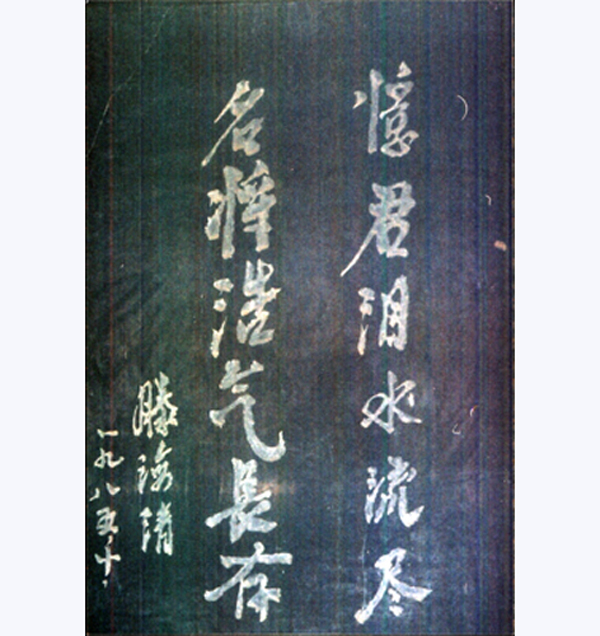 憶君泪水流尽
名将浩气長存
滕海清
一九八五.十.